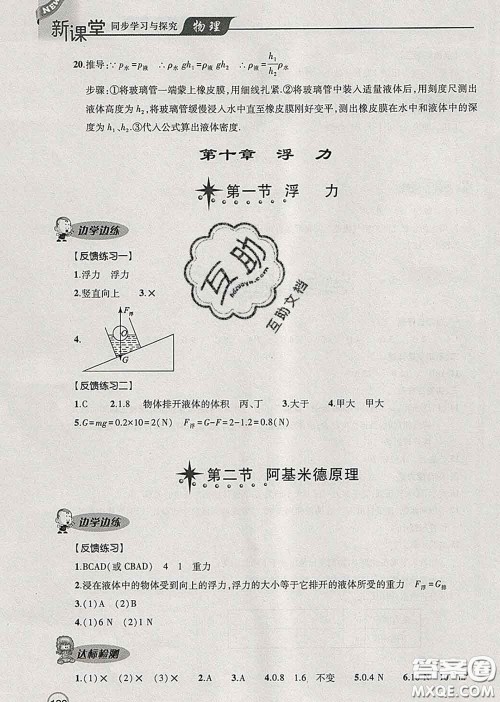 NEW
新课堂 同步学习与探究 物理
20.推导:∵p水=p液 ∴ρ水gh1=ρ液gh2 ∴ρ液=h1/h2ρ水
步骤:①将玻璃管一端蒙上橡皮膜,用细线扎紧.②将玻璃管中装入适量液体后,用刻度尺测出
液体高度为h2,将玻璃管缓慢浸入水中直至橡皮膜刚好变平,测出橡皮膜在水中和液体中的深
度为h1、h2.③代入公式算出液体密度.
第十章 浮 力
第一节 浮 力
边学边练
【反馈练习一】
1.浮力 浮力
2.竖直向上 3.×
4.
F浮
G
【反馈练习二】
1.C 2.1.8 物体排开液体的体积 丙、丁 3.大于 4.甲大 甲大
5.G=mg=0.2×10=2(N) F浮=G-F=2-1.2=0.8(N)
互助
互助文档
第二节 阿基米德原理
边学边练
【反馈练习】
1.BCAD(或CBAD) 4 1 重力
2.浸在液体中的物体受到向上的浮力,浮力的大小等于它排开的液体所受的重力 F浮=G排
3.(1)A (2)B
4.(1)6 N (2)1 N
达标检测
1.(1)5 (2)75 2.A 3.A 4.0.8 1.6 不变 5.0.4 N
答案圈
MXQE.COM